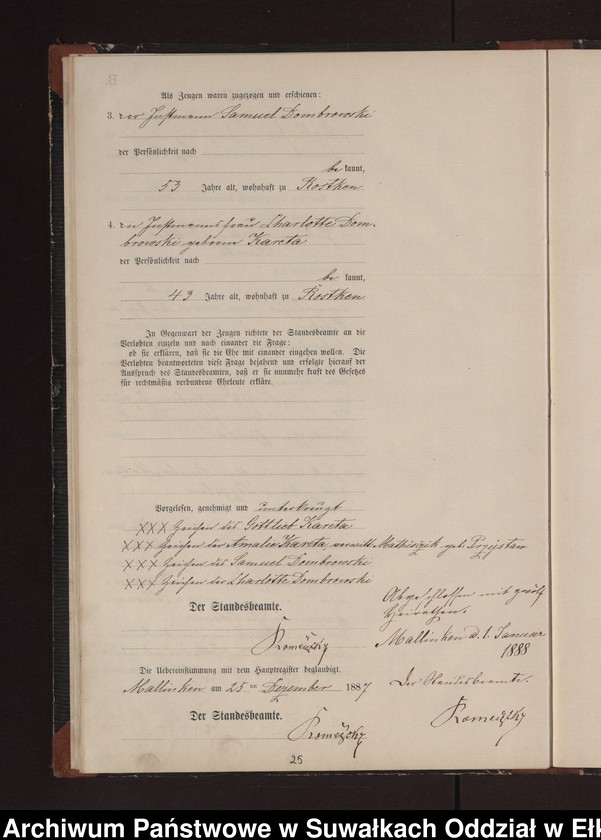 B.
Als Zeugen waren zugezogen und erschienen:
3. der Instmann Samuel Dombrowski
der Persönlichkeit nach
be kannt,
53 Jahre alt, wohnhaft zu Rostken
4. die Instmannsfrau Charlotte Dom-
browski geborne Kareta
der Persönlichkeit nach
be kannt,
43 Jahre alt, wohnhaft zu Rostken
In Gegenwart der Zeugen richtete der Standesbeamte an die
Verlobten einzeln und nach einander die Frage:
ob sie erklären, daß sie die Ehe mit einander eingehen wollen. Die
Verlobten beantworteten diese Frage bejahend und erfolgte hierauf der
Ausspruch des Standesbeamten, daß er sie nunmehr kraft des Gesetzes
für rechtmäßig verbundene Eheleute erkläre.
Vorgelesen, genehmigt und unterkreuzt
XXX Zeichen des Gottlieb Kareta
XXX Zeichen der Amalie Kareta, verwitt. Mathiszik geb.
XXX Zeichen des Samuel Dombrowski
XXX Zeichen der Charlotte Dombrowski
Der Standesbeamte.
Abgeschlossen mit zwölf
Heirathen.
Mallinken d. 1. Januar
1888
Der Standesbeamte.
Die Uebereinstimmung mit dem Hauptregister beglaubigt.
Mallinken am 25 ten Dezember 1887
Der Standesbeamte.
25
Archiwum Państwowe w Suwałkach Oddział w Eł